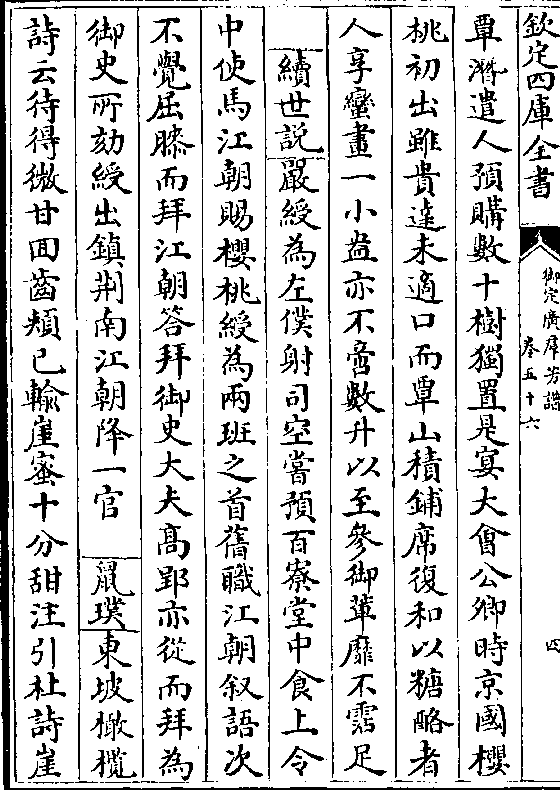 欽定四庫全書
御定廣羣芳譜
卷五十六
四
覃潛遣人預購數十樹獨置是宴大會公卿時京國櫻
桃初出雖貴達未適口而覃山積鋪席復和以糖酪者
人享蠻畫一小盎亦不啻數升以至參御軰靡不霑足
續世説嚴綬為左僕射司空嘗預百寮堂中食上令
中使馬江朝賜櫻桃綬為兩班之首舊職江朝叙語次
不覺屈膝而拜江朝答拜御史大夫髙郢亦從而拜為
御史所劾綬出鎮荆南江朝降一官 鼠璞東坡橄欖
詩云待得微甘回齒頰已輸崖蜜十分甜注引杜詩崖